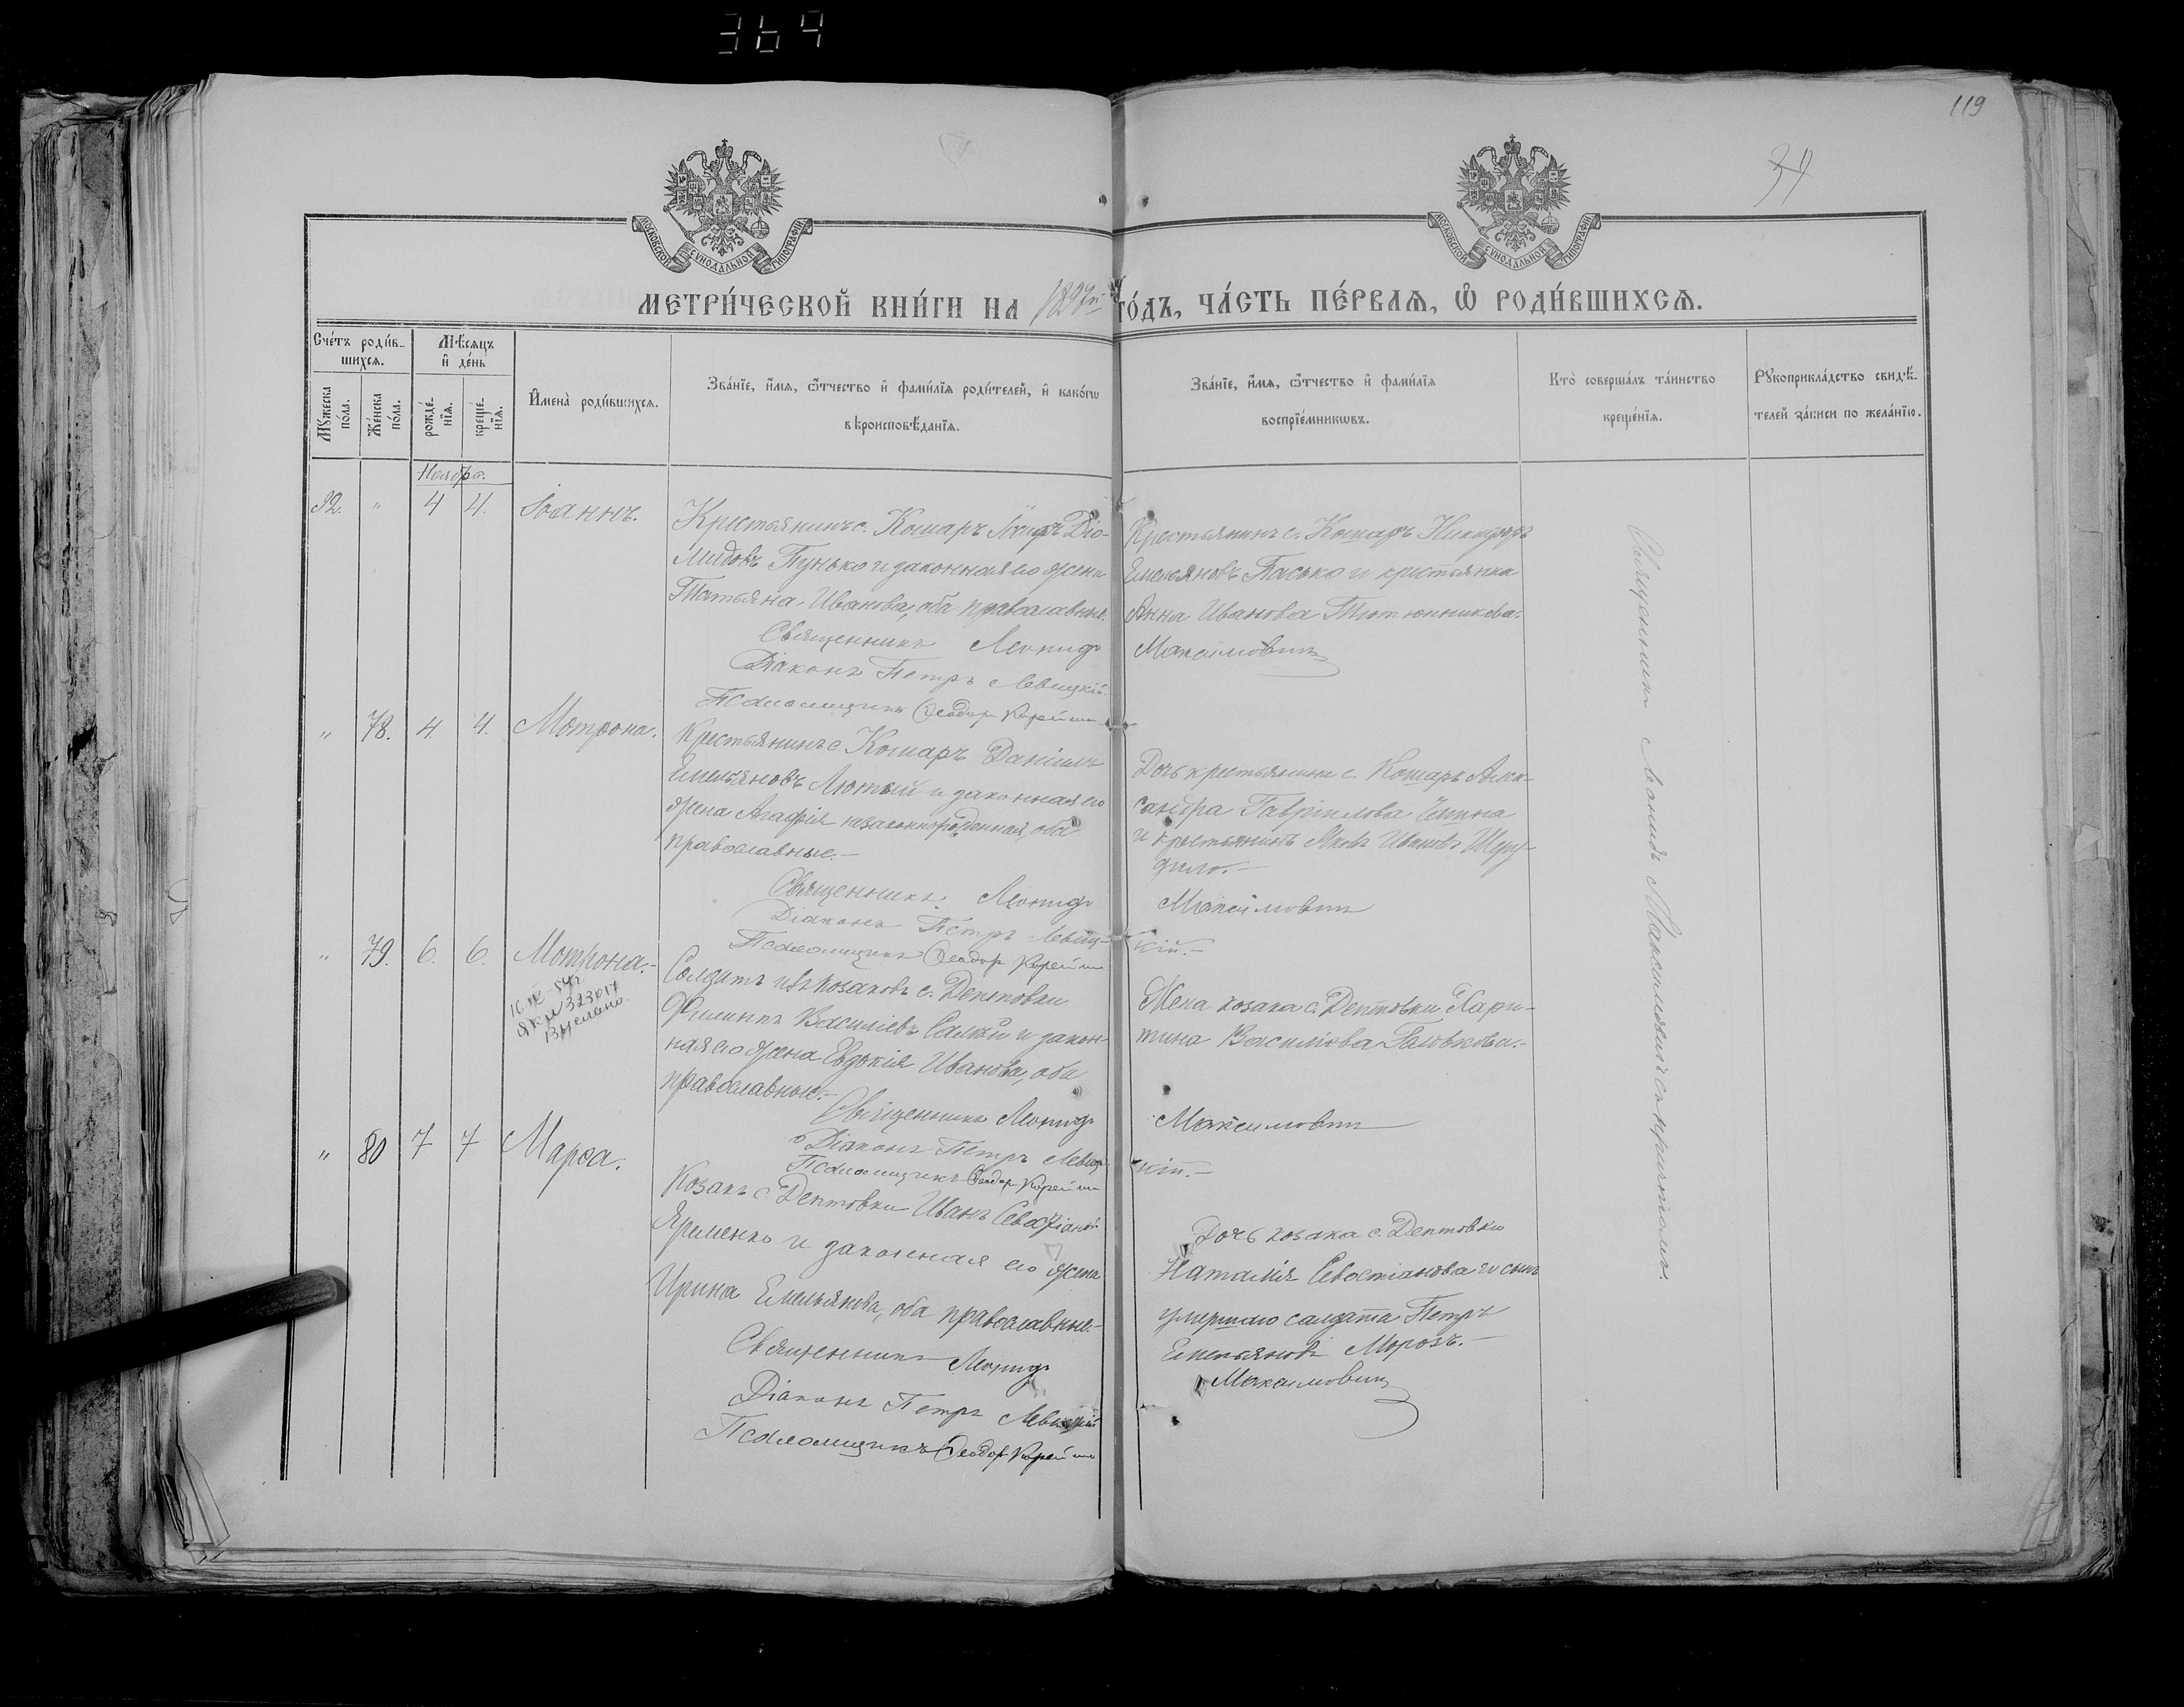 364
119
34
МОСКОВСКОЙ СѴНОДАЛЬНОЙ ТИПОГРАФІИ
МОСКОВСКОЙ СѴНОДАЛЬНОЙ ТИПОГРАФІИ
МЕТРИ́ЧЕСКОЙ КНИ́ГИ НА 1897й ГО́ДЪ, ЧА́СТЬ ПЕ́РВАѦ, Ѡ҆ РОДИ́ВШИХСѦ.
Сче́тъ роди́в-
шихсѧ.
Мѣ́сѧцъ
и҆ де́нь
Мꙋ́жеска
по́ла.
Же́нска
по́ла.
рожде́-
нїѧ.
креще́-
нїѧ.
И҆мена̀ роди́вшихсѧ.
Зва́нїе, и҆́мѧ, ѻ҆́тчество и҆ фами́лїѧ роди́телей, и҆ како́гѡ
вѣроисповѣ́данїѧ.
Зва́нїе, и҆́мѧ, ѻ҆́тчество и҆ фами́лїѧ
воспрїе́мникѡвъ.
Кто̀ соверша́лъ та́инство
креще́нїѧ.
Рꙋкоприкла́дство свидѣ́-
телей за́писи по жела́нїю.
Ноябрь.
92. " 4 4. Іоаннъ.
Крестьянинъ с. Кошаръ Діо-
мидовъ Пунько и законная его жена
Татьяна Иванова, оба православные.
Крестьянинъ с. Кошаръ Никифоръ
Емельяновъ Пасько и крестьянка
Анна Иванова Тютюнникова.
Священникъ Леонидъ Максимовичъ
Діаконъ Петръ Левицкій.
Псаломщикъ Ѳеодоръ
" 78. 4. 4. Мотрона.
Крестьянинъ с. Кошаръ Даніилъ
Емельяновъ Лютый и законная его
жена Агафія незаконнорожденная, оба
православные.—
Дочь крестьянина с. Кошаръ Алек-
сандра Гавріилова
и крестьянинъ Яковъ Ивановъ
Священникъ Леонидъ Максимовичъ
Діаконъ Петръ Левиц-
кій.—
Псаломщикъ Ѳеодоръ
" 79. 6. 6. Мотрона.—
Солдатъ изъ козаковъ с. Дептовки
Филиппъ Василіевъ и закон-
ная его жена Евдокія Иванова, оба
православные.—
Жена козака с. Дептовки Хари-
тина Василіева
Священникъ Леонидъ Максимовичъ
Діаконъ Петръ Левиц-
кій.—
Псаломщикъ Ѳеодоръ
" 80 7 7 Марѳа.
Козакъ с. Дептовки Иванъ
Яременко и законная его жена
Ирина Емельянова, оба православные.—
Дочь козака с. Дептовки
Наталія Севастіанова и сынъ
умершаго солдата Петръ
Емельяновъ Морозъ.—
Священникъ Леонидъ Максимовичъ
Діаконъ Петръ Левицкій
Псаломщикъ Ѳеодоръ
Священникъ Леонидъ Максимовичъ съ причтомъ.